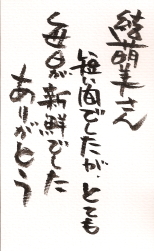 萌美さん
短い間でしたが、とても
毎日が新鮮でした
ありがとう